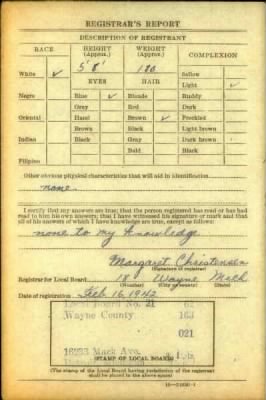 REGISTRAR'S REPORT
DESCRIPTION OF REGISTRANT
RACE
HEIGHT (Approx.)
WEIGHT (Approx.)
COMPLEXION
5' 8"
180
White ✓
EYES
HAIR
Sallow
Light ✓
Negro
Blue ✓
Blonde
Ruddy
Gray
Red
Dark
Oriental
Hazel
Brown ✓
Freckled
Brown
Black
Light brown
Indian
Black
Gray
Dark brown
Bald
Black
Filipino
Other obvious physical characteristics that will aid in identification
none
I certify that my answers are true; that the person registered has read or has had
read to him his own answers; that I have witnessed his signature or mark and that
all of his answers of which I have knowledge are true, except as follows:
none to my knowledge
Margaret Christensen
(Signature of registrar)
Registrar for Local Board 18 Wayne Mich
(Number) (City or county) (State)
Date of registration Feb. 16, 1942
Local Board No. 21 62
Wayne County 163
021
16233 Mack Ave.
(STAMP OF LOCAL BOARD)
(The stamp of the Local Board having jurisdiction of the registrant
shall be placed in the above space)